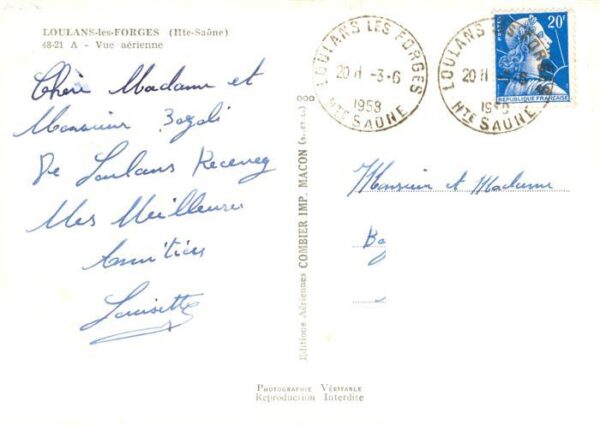 LOULANS-les-FORGES (Hte-Saône)
48-21 A - Vue aérienne
Chère Madame et
Monsieur
De Loulans Recevez
Mes Meilleures
Amitiés
Louisette
Editions Aériennes COMBIER IMP. MACON (S.-et-L.)
LOULANS LES FORGES
20 H -3-6
1958
HTE SAÔNE
LOULANS LES FORGES
20 H -3-6
1958
HTE SAÔNE
POSTES
20F
REPUBLIQUE FRANÇAISE
Monsieur et Madame
PHOTOGRAPHIE VÉRITABLE
Reproduction Interdite